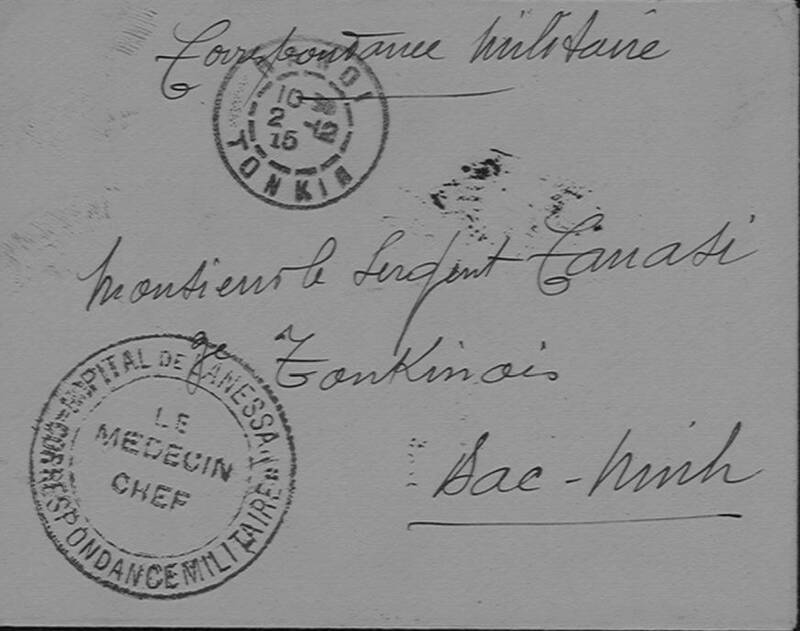 Correspondance Militaire
HANOI
10
2 -12
15
TONKIN
Monsieur le Sergent Canasi
3e Tonkinois
Bac-Ninh
HOPITAL DE LANESSAN
LE
MEDECIN
CHEF
CORRESPONDANCE MILITAIRE